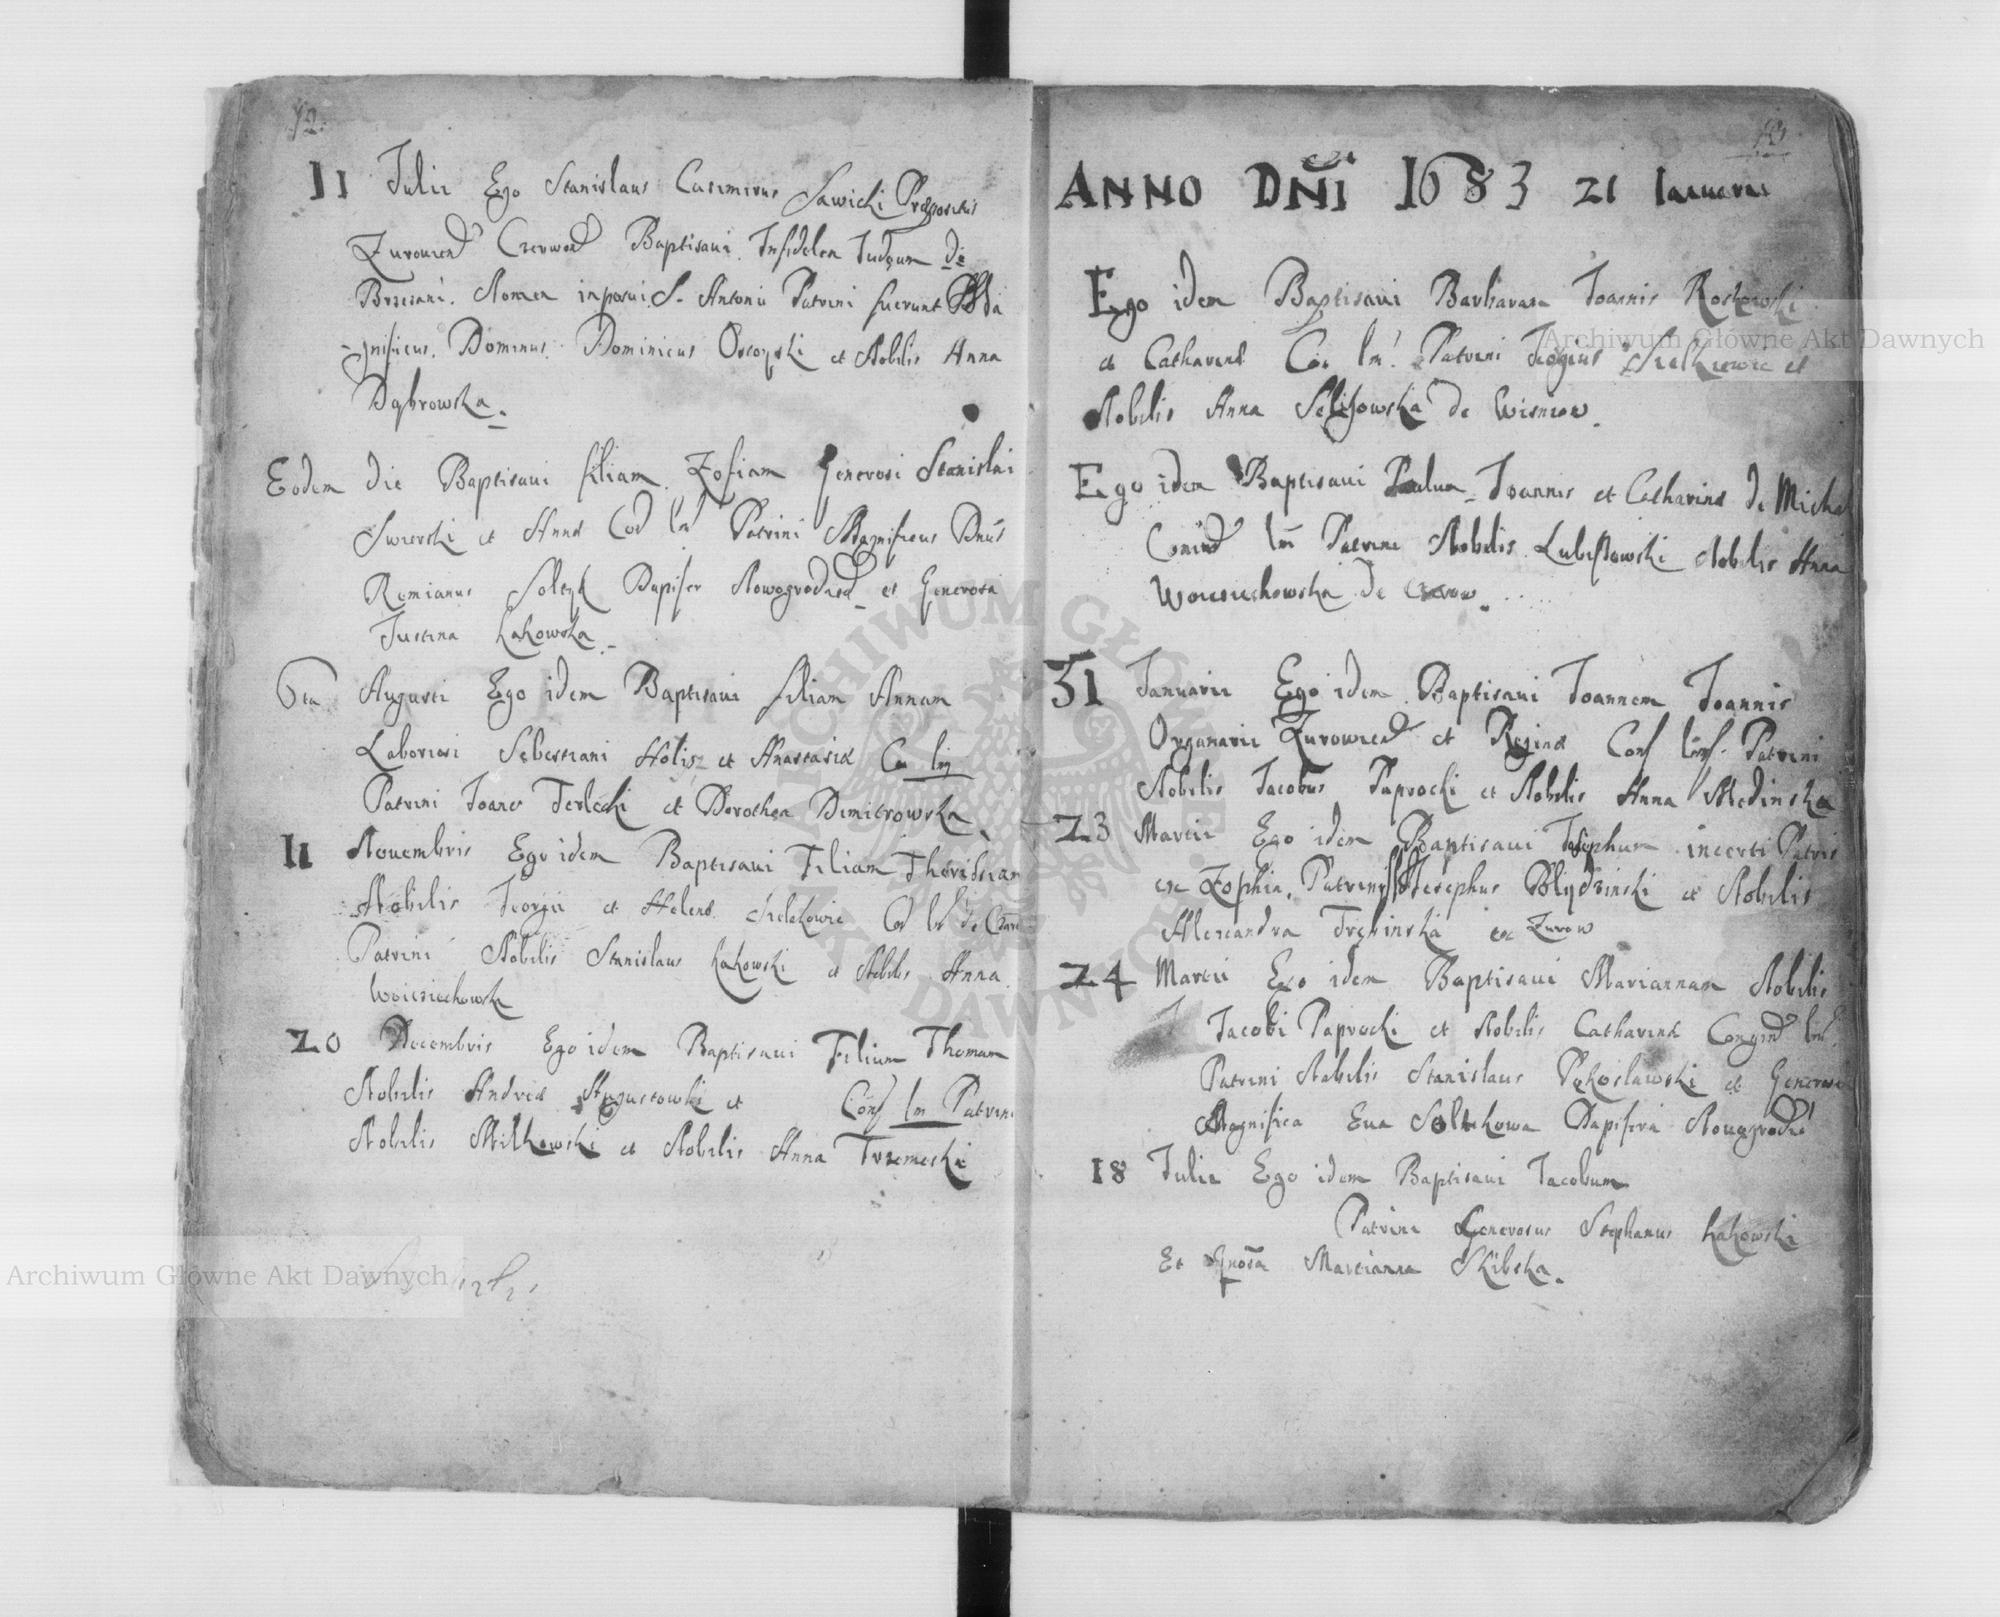 11 Julii Ego Stanislaus Casimirus Sawicki Præpositus
Zurovien Czerwon Baptisavi Infidelem Judæum de
Brzezani. Nomen inposui S. Antonii Patrini fuerunt Ma
gnificus Dominus Dominicus et Nobilis Anna
Dąbrowska.
Eodem die Baptisavi filiam Zofiam Generosi Stanislai
Swierski et Annæ Co lm Patrini Magnificus Dnus
Remianus Soltyk Dapifer Nowogrodien et Generosa
Justina Łakowska.
6ta Augusti Ego idem Baptisavi filiam Annam
Laboriosi Sebestiani Holis et Anastasiæ Co lm
Patrini Joanes Terlecki et Dorothea Dimitrowska
11 Novembris Ego idem Baptisavi Filiam Theressiam
Nobilis Georgii et Helenæ Co lm de
Patrini Nobilis Stanislaus Łakowski et Nobilis Anna
Woiciechowska
20 Decembris Ego idem Baptisavi Filium Thomam
Nobilis Andreæ Augustowski et Conf lm Patrini
Nobilis Milkowski et Nobilis Anna Trzemeska
ANNO DÑI 1683 21 Ianuarii
Ego idem Baptisavi Barbaram Joannis Roskowski
et Catharinæ Co lm Patrini et
Nobilis Anna de Wisniow.
Ego idem Baptisavi Joannis et Catharinæ de Micha
lm Patrini Nobilis Nobilis Anna
Woiciechowska de
31 Januarii Ego idem Baptisavi Joannem Joannis
Organarii Zurowien et Reginæ Conf Patrini
Nobilis Jacobus Paprocki et Nobilis Anna Medinska
23 Martii Ego idem Baptisavi Josephum incerti Patris
ex Zophia, Patrini Josephus et Nobilis
Alexandra Trębinska ex Zurow
24 Martii Ego idem Baptisavi Mariannam Nobilis
Jacobi Paprocki et Nobilis Catharinæ lm
Patrini Nobilis Stanislaus Pękoslawski et Generosa
Magnifica Eva Soltykowa Dapifera Novogrodien
18 Julii Ego idem Baptisavi Jacobum
Patrini Generosus Stephanus Łakowski
Et Gnosa Marcianna Skibska.
Archiwum Główne Akt Dawnych
Archiwum Główne Akt Dawnych
ARCHIWUM GŁÓWNE AKT DAWNYCH